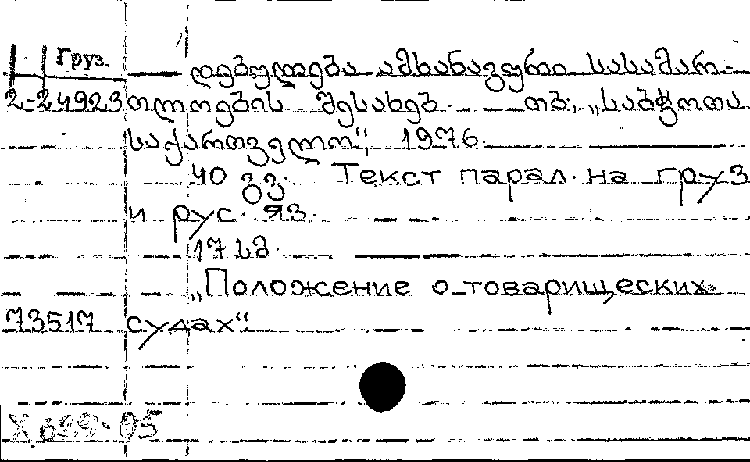 Груз.
დებულება ამხანაგური სასამარ-
2-24923 თლოების შესახებ. თბ., „საბჭოთა
საქართველო“, 1976.
40 გვ. Текст парал. на груз
и рус. яз.
17 სმ.
„Положение о товарищеских
73517 судах“.
X.699-95